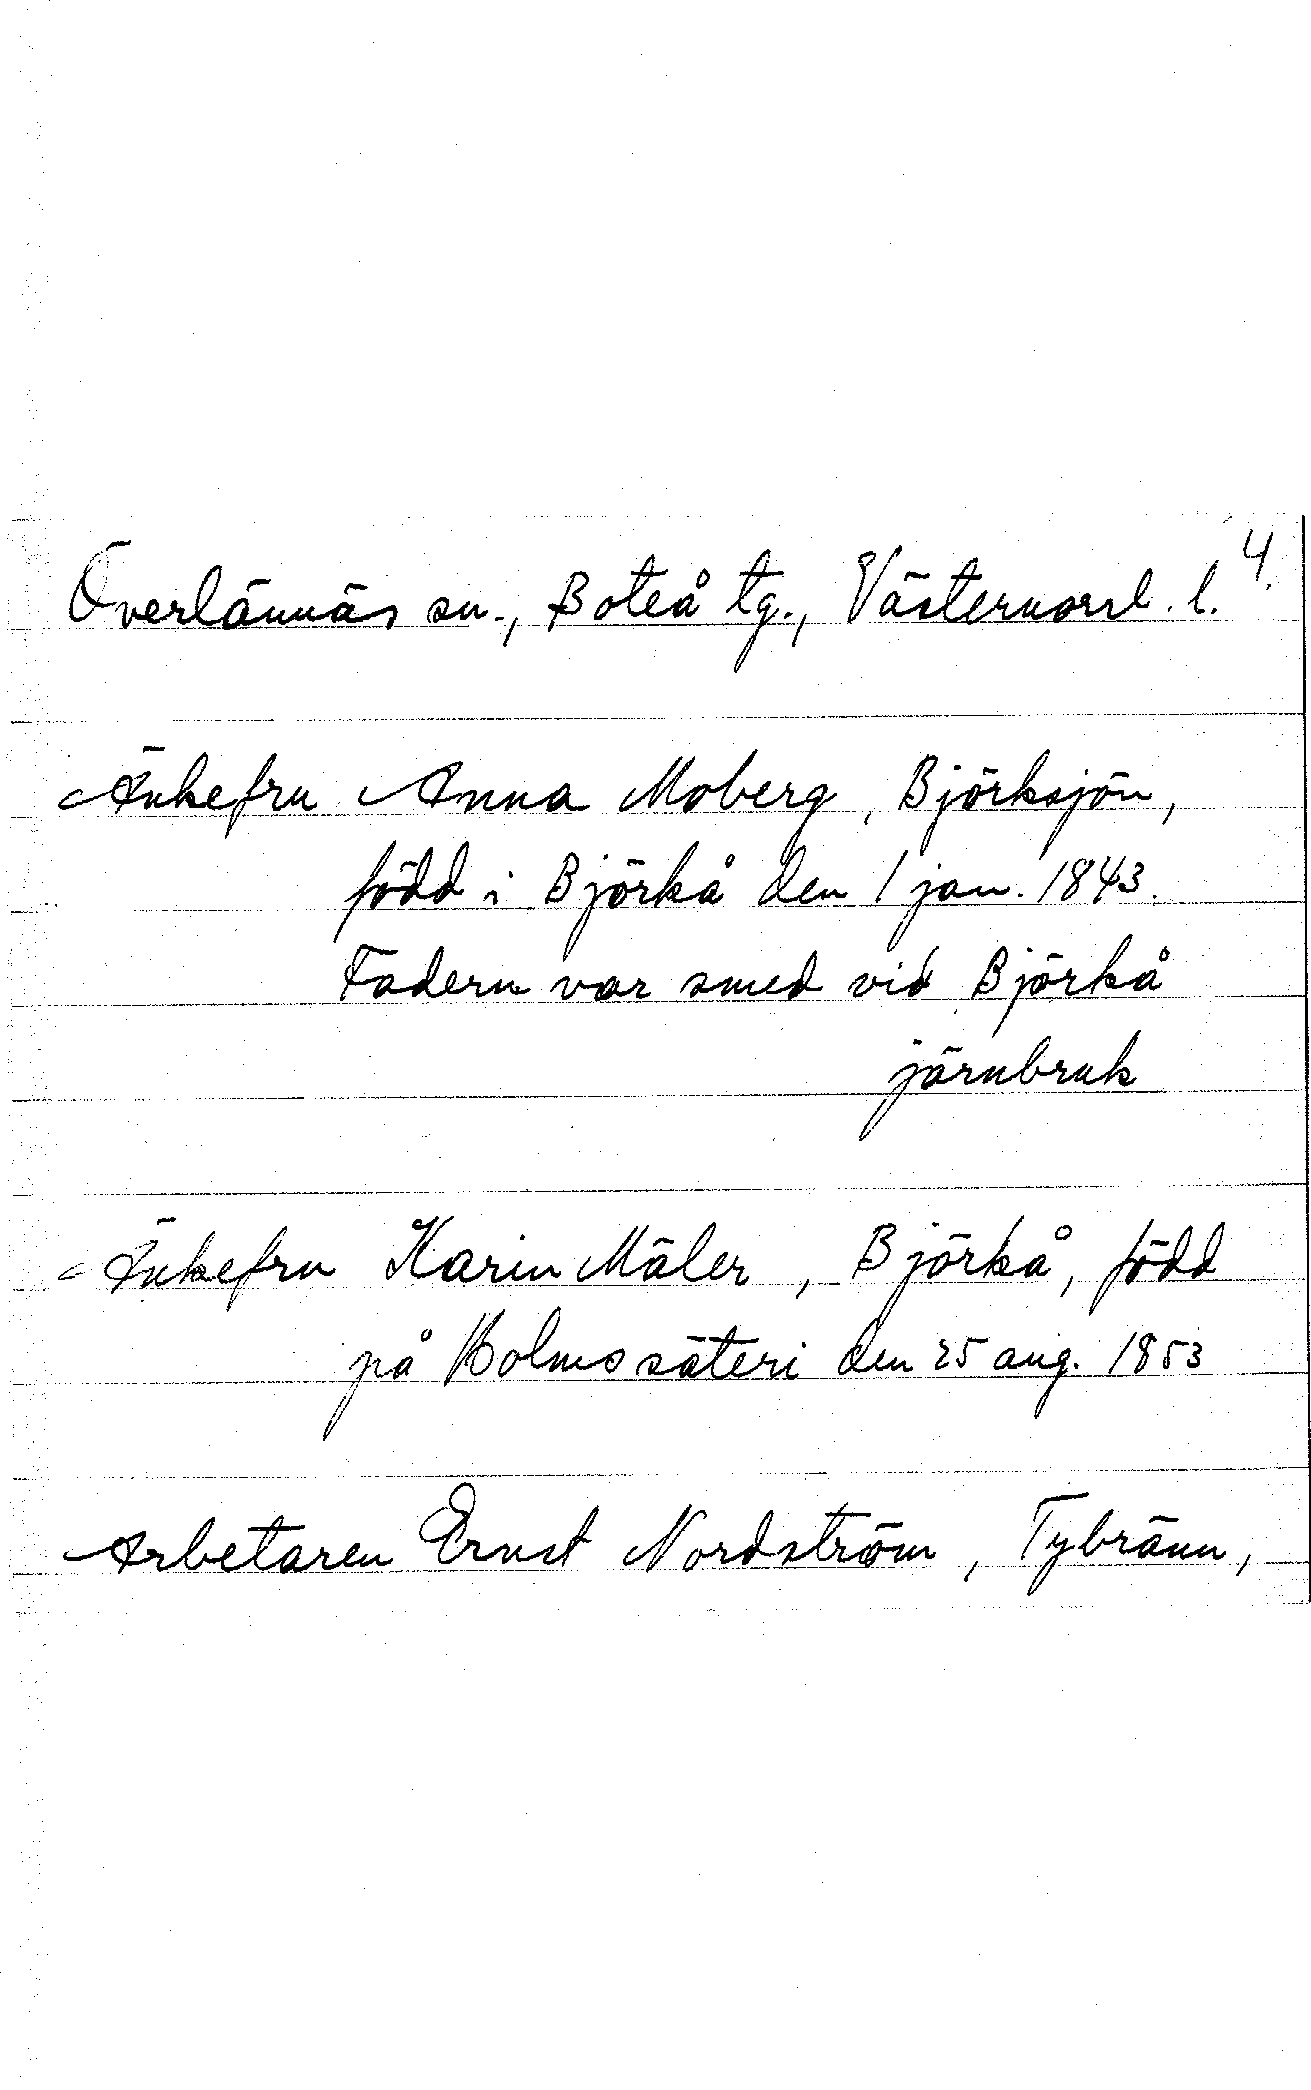 4.
Överlännäs sn., Boteå tg., Västernorrl. l.
Änkefru Anna Moberg, Björksjön,
född i Björkå den 1 jan. 1843.
Fadern var smed vid Björkå
järnbruk
Änkefru Karin Mäler, Björkå, född
på Holms säteri den 25 aug. 1853
Arbetaren Ernst Nordström, Tybränn,